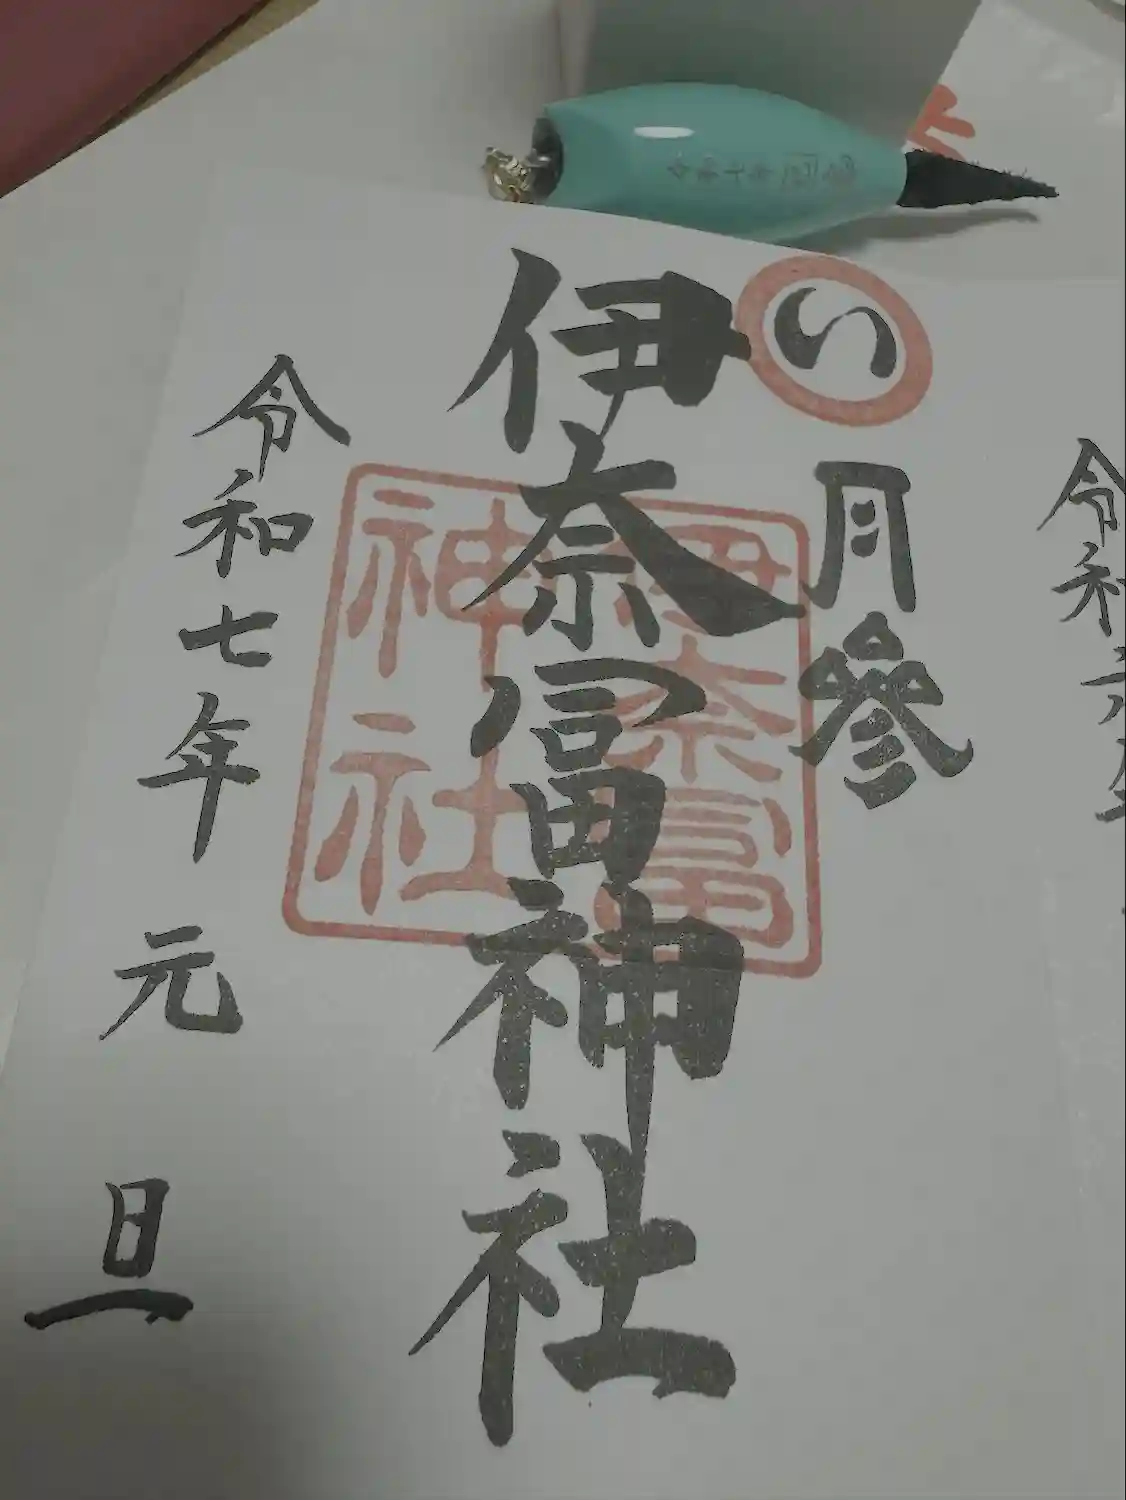 い
月參
伊奈冨神社
伊奈冨
神社
令和七年 元旦
令和